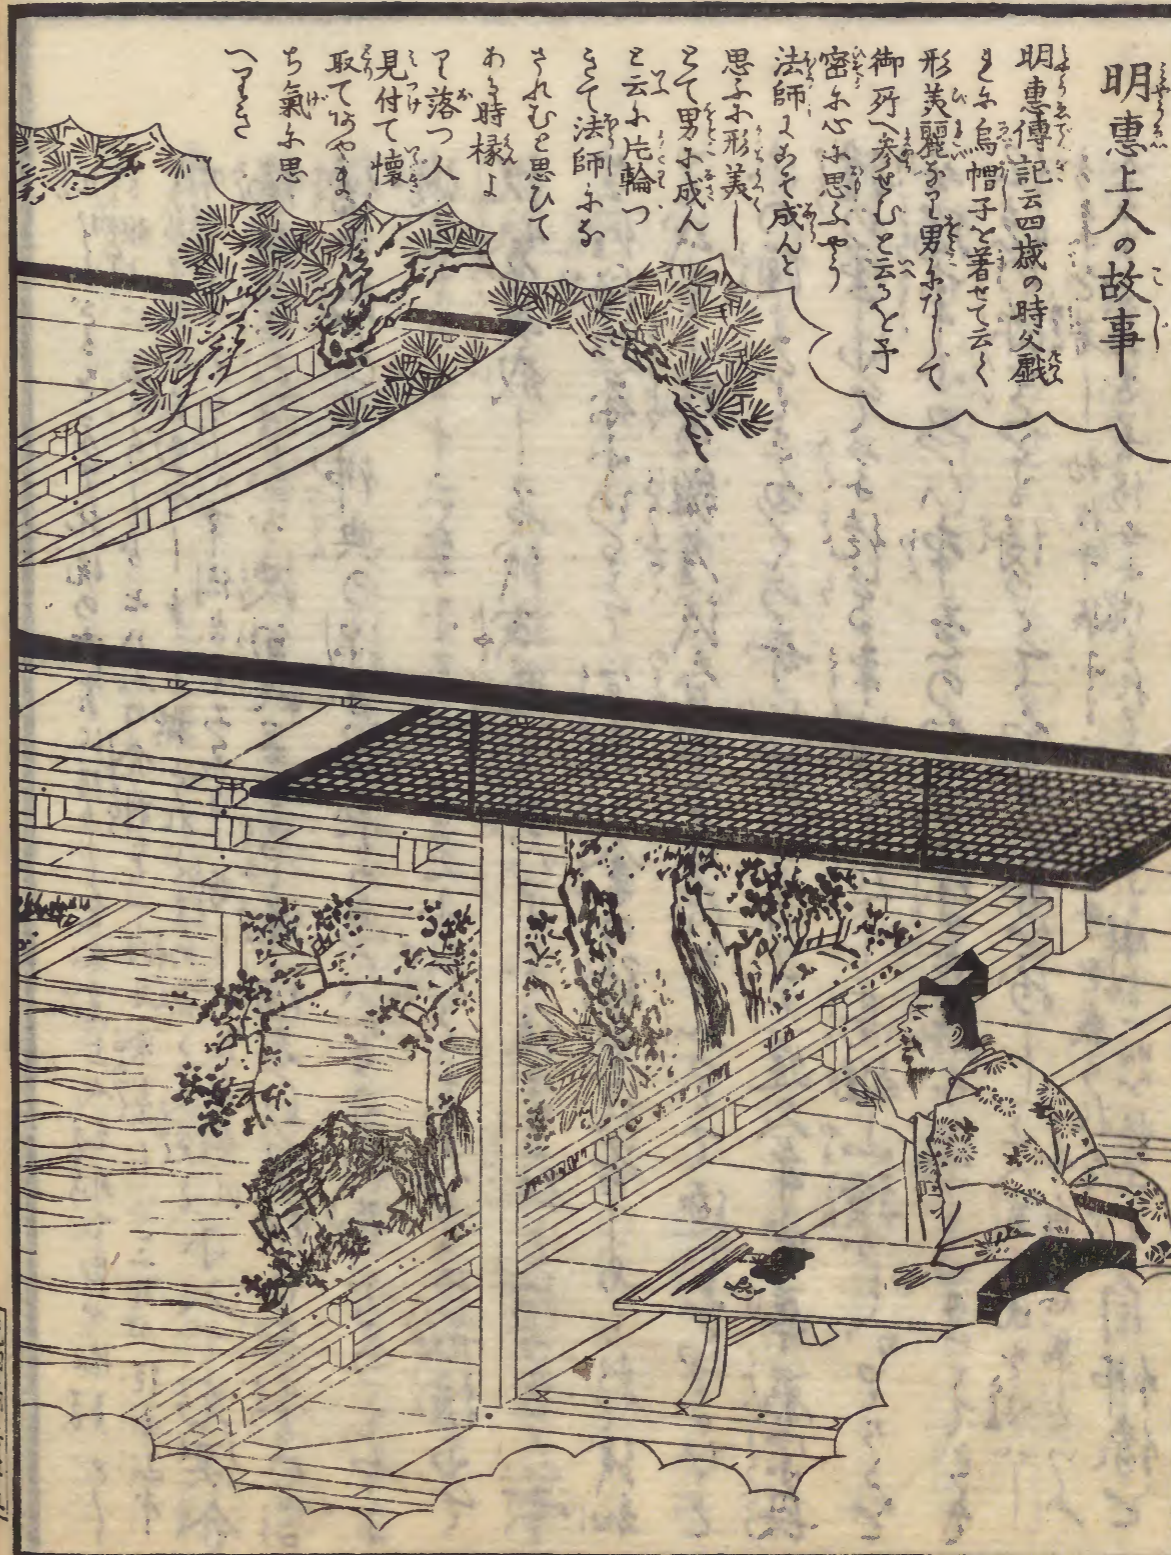 明惠上人の故事
明惠傳記云四歳の時父戯
まに烏帽子を着せて云く
形美麗なり男になして
御所へ参せむと云るを予
密に心に思ふやう
法師にこそ成んと
思ふに形美し
とて男に成ん
と云に片輪つ
きて法師にな
されむと思ひて
ある時縁よ
り落つ人
見付て懐
取てあやま
ち氣に思
へりき